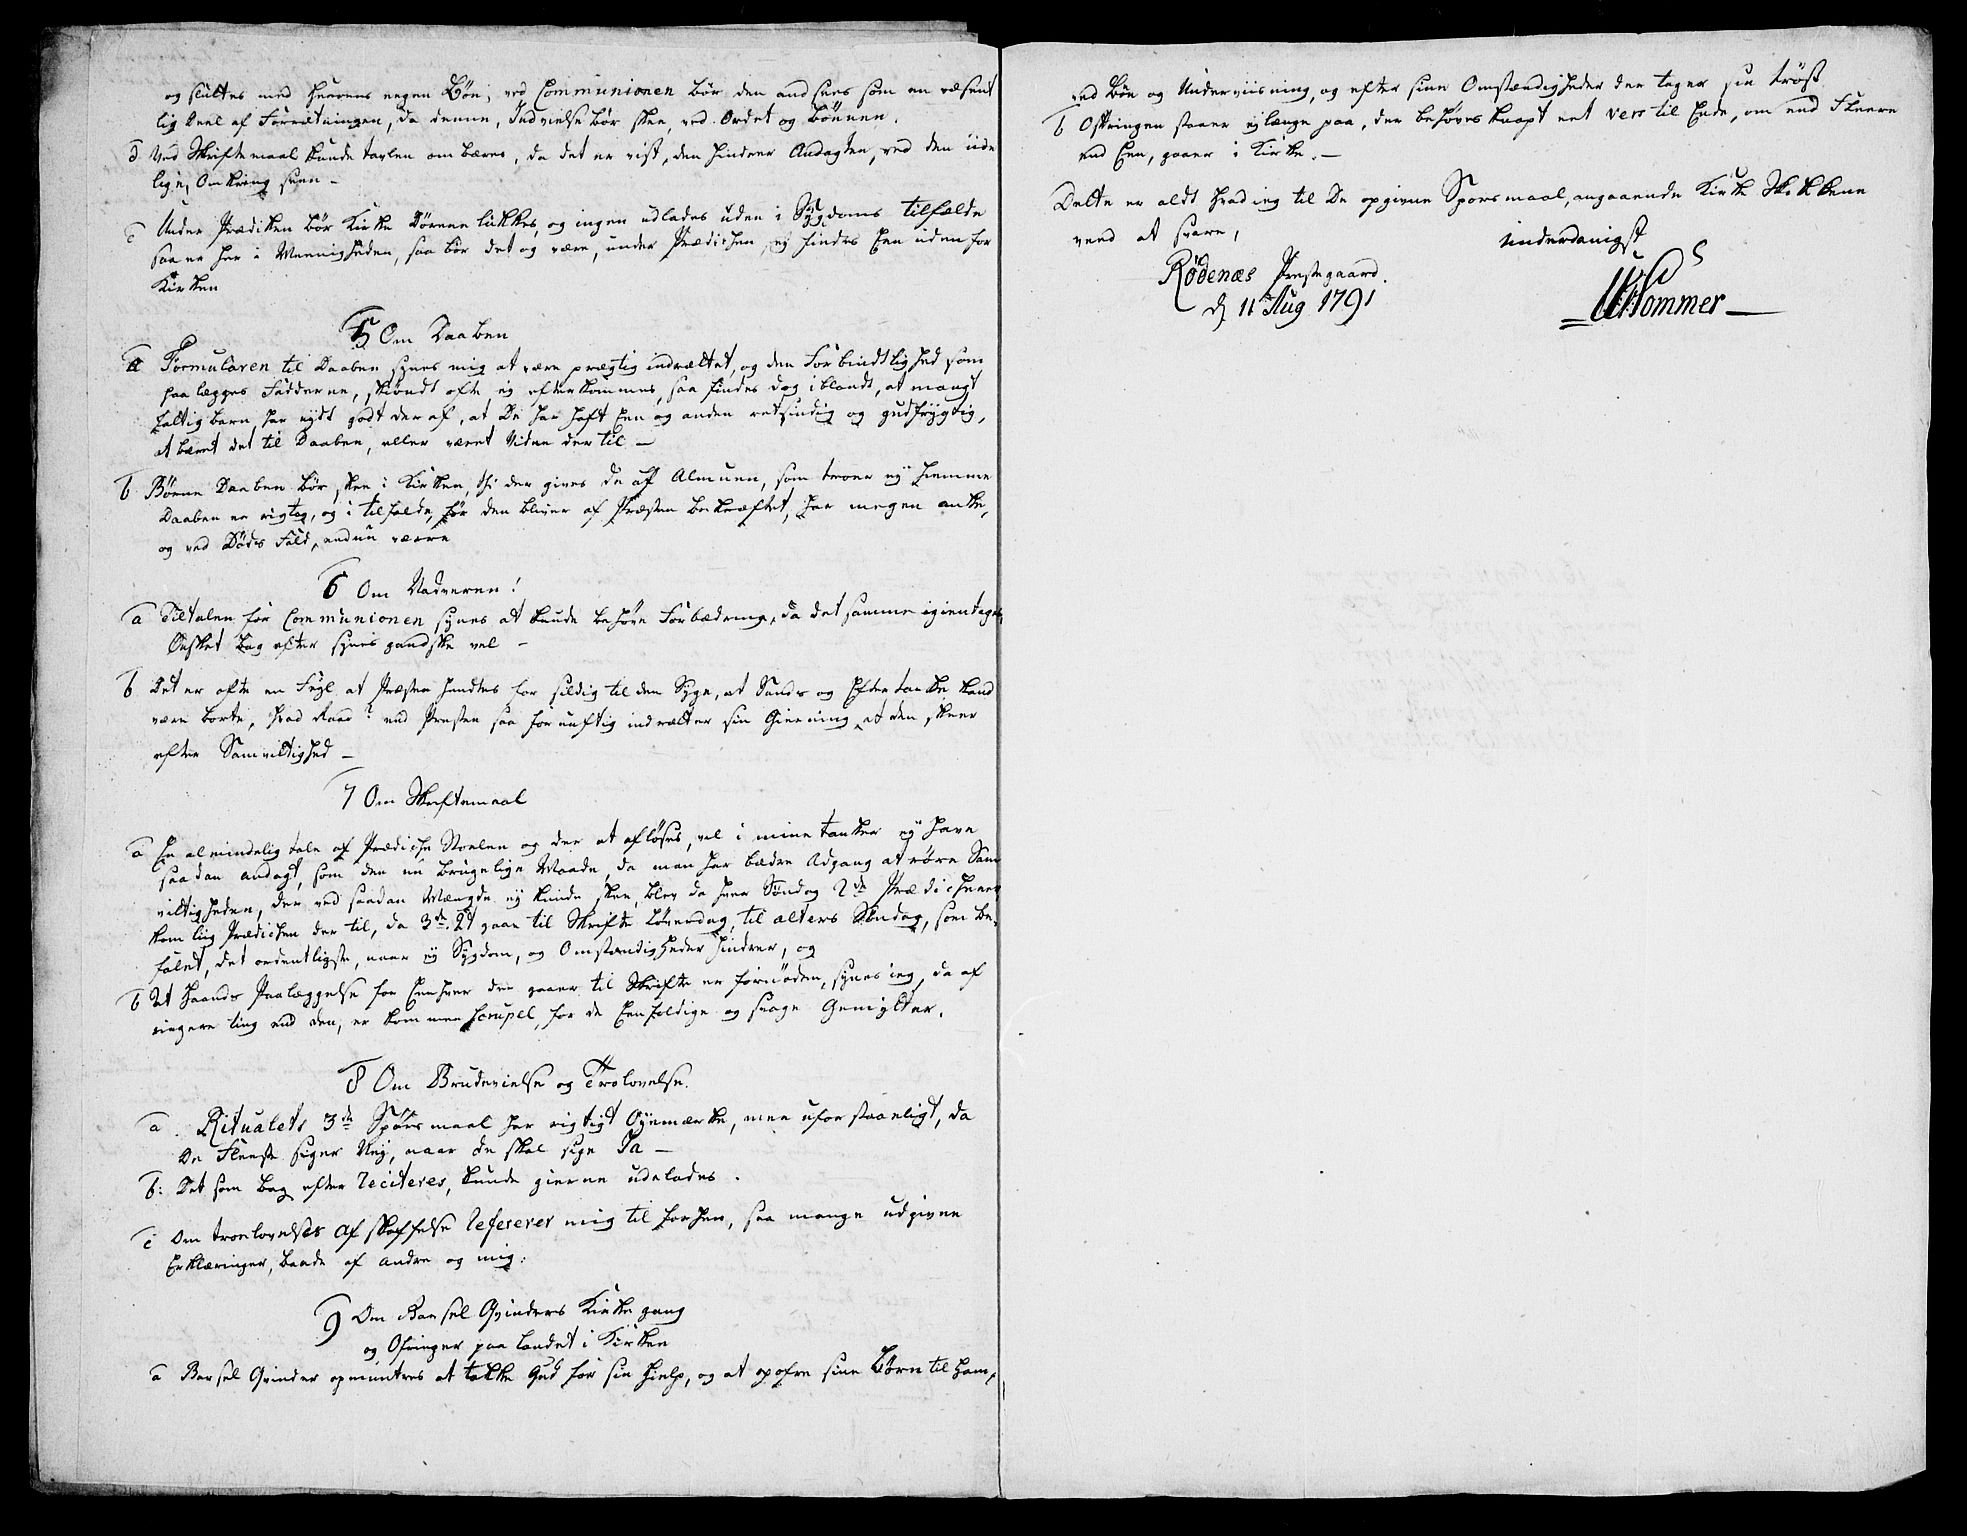 og sluttes med Herrens egen Bøn, ved Communionen bør den ansees som en væsent
lig Deel af Forretningen, da denne Indvielse bør skee ved Ordet og Bønnen.
d Ved Skriftemaal kunde tavlen ombæres, da det er vist, den hindrer Andagten, ved den iide
lige, Omkring seen –
e Under Prædiken bør Kirke Dørene lukkes, og ingen udlades uden i Sygdoms tilfælde
saa er her i Meenigheden, saa bør det og være, under Prædichen, ej findes Een uden for
Kirken
5 Om Daaben
a Formularen til Daaben synes mig at være prægtig indrættet, og den Forbindtlighed som
paalegges Fadderne, skiøndt ofte ej efterkommes, saa findes dog iblandt, at mangt
fattig barn, har nydt godt der af, at De har haft Een og anden retsindig og gudfrygtig,
at bære det til Daaben, eller været Vidne der til –
b Børne Daaben bør skee i Kirken, thi der gives de af Almuen, som troer ej hiemme
Daaben er rigtig, og i tilfælde, før den bliver af Præsten bekræftet, har megen anke,
og ved Døds Fald, endnu værre
6 Om Nadveren!
a Tiltalen før Communionen synes at kunde behøve Forbædring, da det samme igientages,
Ønsket bag efter synes gandske vel –
b Det er ofte en Fejl at Præsten hendtes for sildig til den Syge, at Sands og Eftertanke kand
være borte, hvad Raad? end Præsten saa fornuftig indrætter sin Gierning, at den skeer
efter Samvittighed –
7 Om Skriftemaal
a En almindelig tale af Prædiche Stoelen og der at afløses, vil i mine tanker ej have
saadan andagt, som den nu brugelige Maade, da man har bædre Adgang at røre Sam
vittigheden, der ved saadan Mængde ej kunde skee, blev da hver Søndag 2de Prædichener
kom liig Prædichen der til, da 3de Lov at gaae til Skrifte Løverdag, til alters Søndag, som be-
falet, det ordentligste, naar ej Sygdom, og Omstændigheder hindrer, og
b At Haands Paalæggelse for Eenhver der gaaer til Skrifte er fornøden, synes ieg, da af
ringere ting end den, er kommen scrupel, for de Eenfoldige og svage Gemytter.
8 Om Brudevielse og Trolovelse.
a Ritualets 3de Spørsmaal har rigtigt Øyemærke, men uforstaanligt, da
De Fleeste siger Nej, naar de skal sige Ja –
b: Det som bag efter reciteres, kunde gierne udelades.
c Om troelovelses Afskaffelse refererer mig til forhen, saa mange udgivne
Erklæringer, baade af andre og mig.
9 Om Barsel Qvinders Kirkegang
og Ofringer paa landet i Kirken
a Barsel Qvinder opmuntres at takke Gud for sin Hielp, og at opofre sine Børn til ham,
ved Bøn og Underviisning, og efter sine Omstændigheder der tager sin trøst
b Ofringen staaer ej længe paa, der behøves knapt eet vers til Ende, om end Fleere
end Een, gaaer i Kirke. –
Dette er aldt hvad ieg til De opgivne Sporsmaal, angaaende Kirke Skikkene
veed at svare,
underdanigst
Rødenæs Præstegaard.
d 11 Aug 1791
Sommer